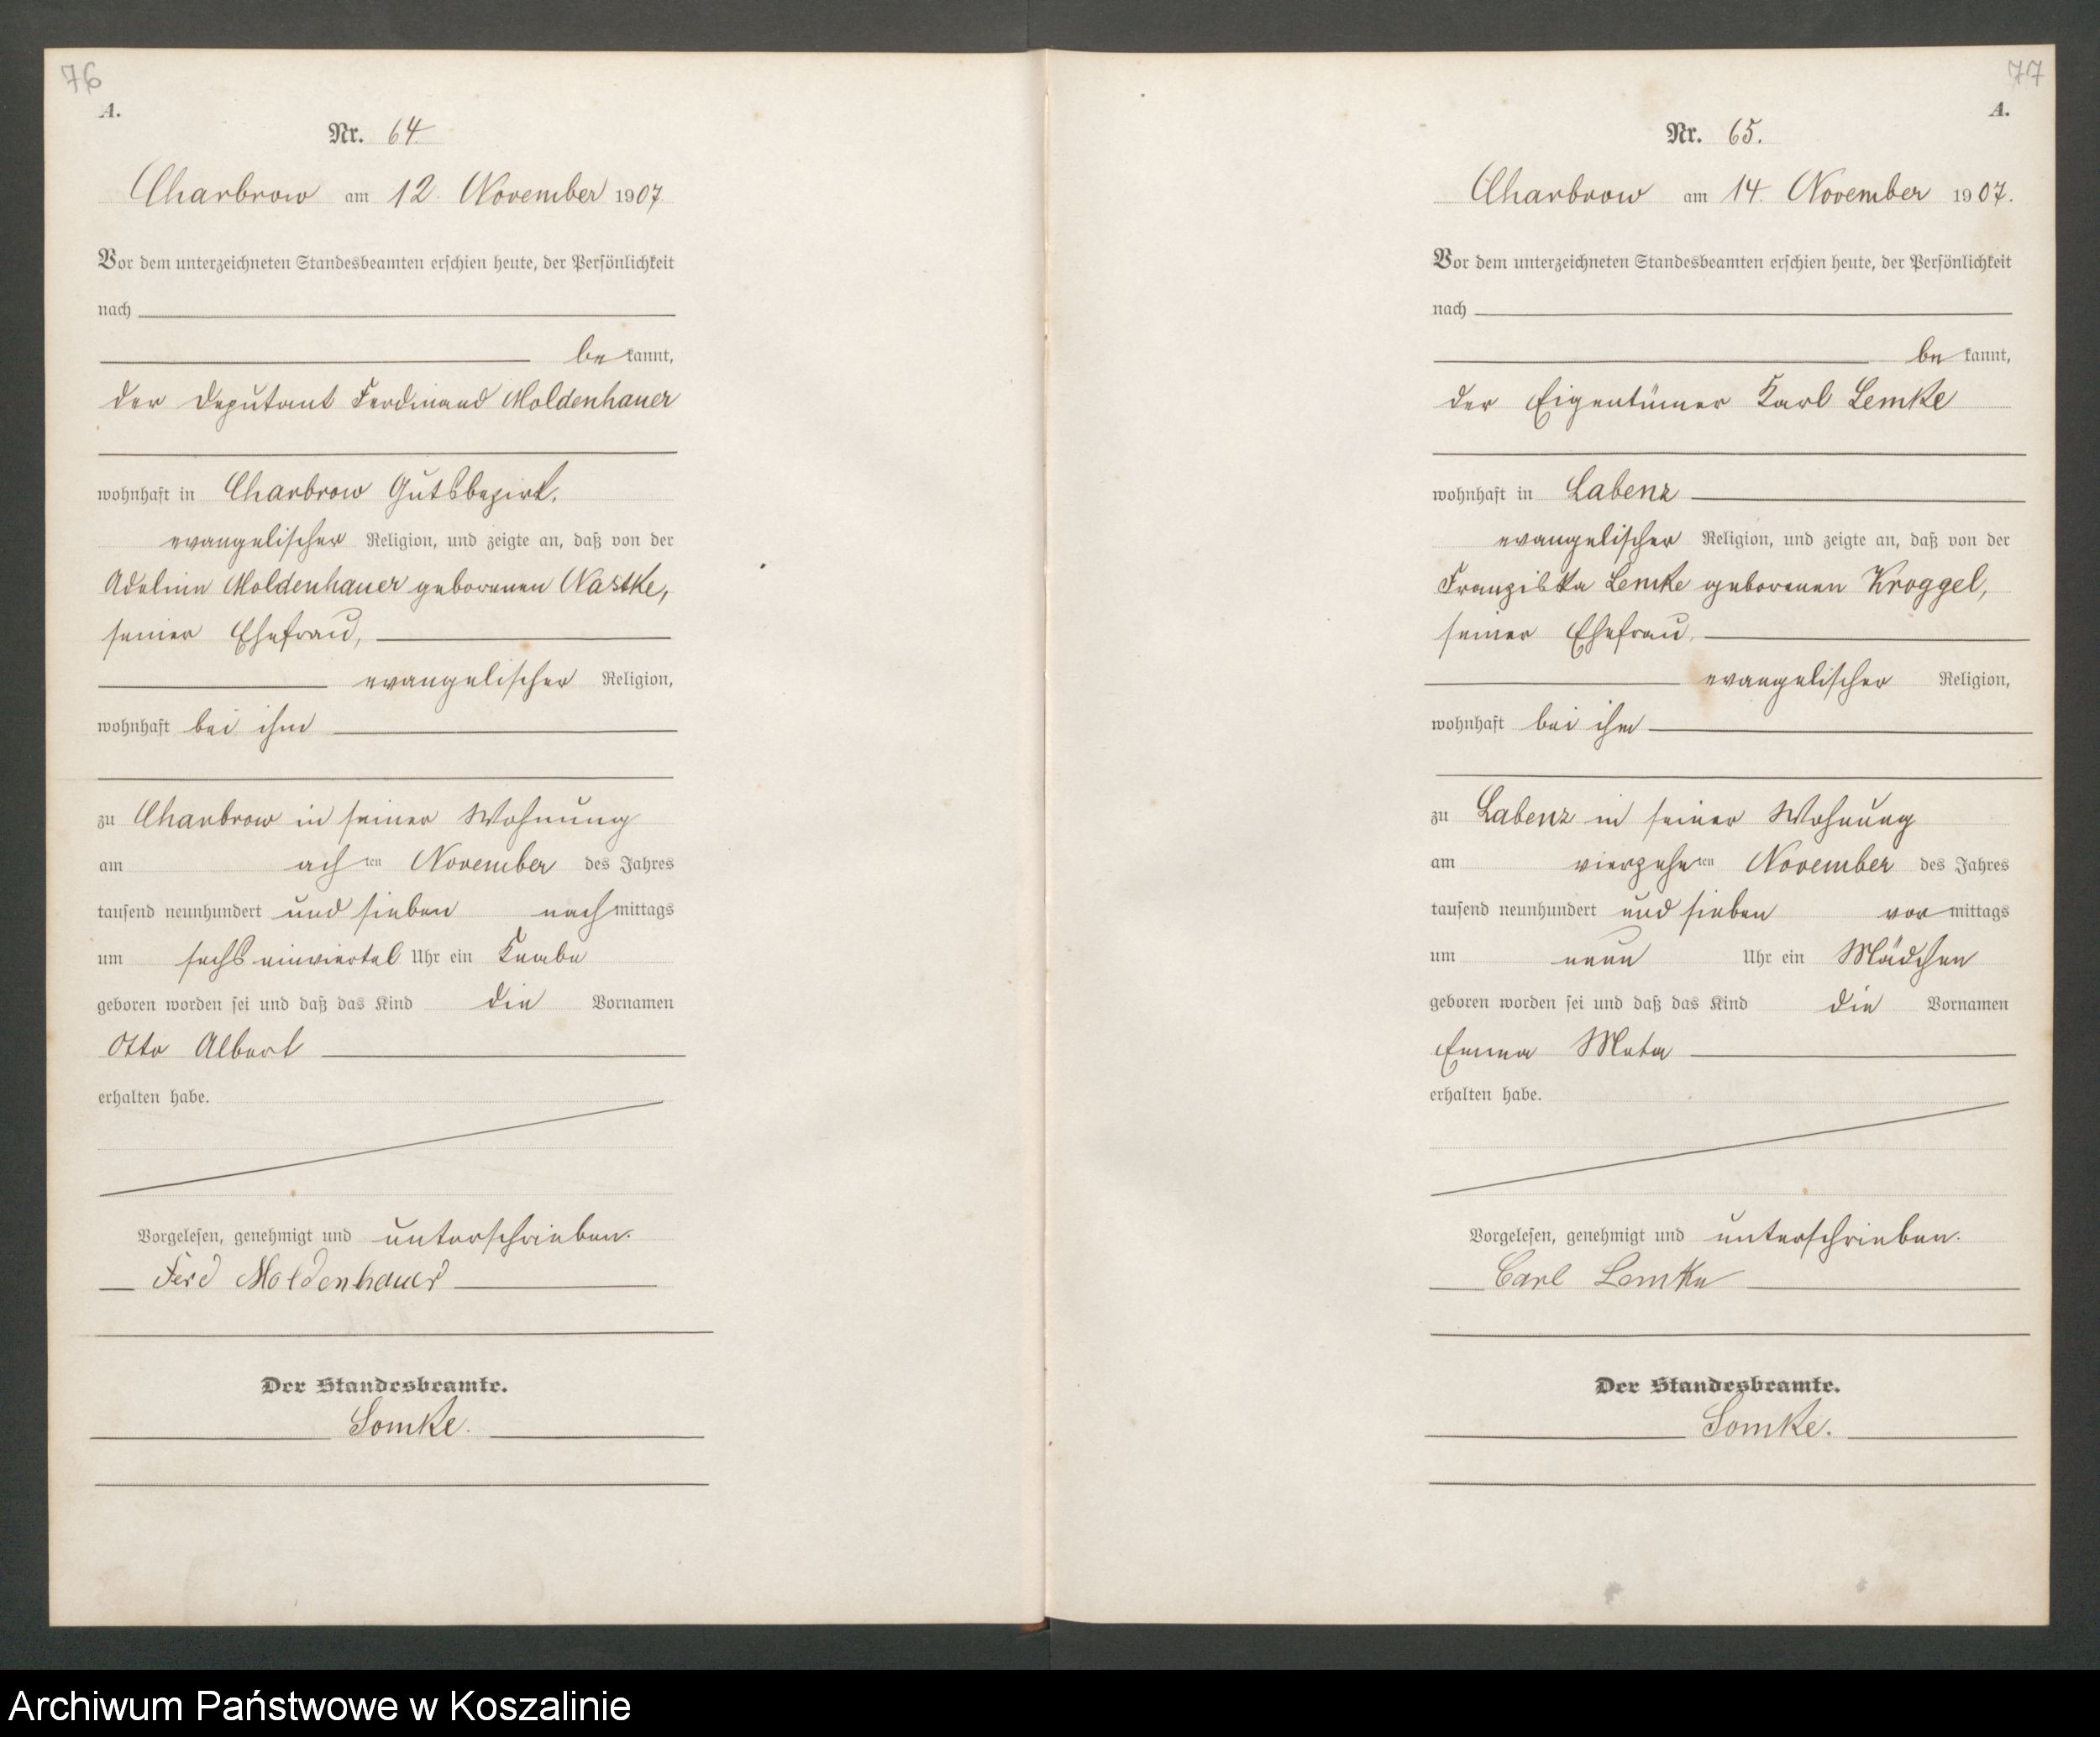 76
A.
Nr. 64.
Charbrow am 12. November 1907.
Vor dem unterzeichneten Standesbeamten erschien heute, der Persönlichkeit
nach
be kannt,
der Deputant Ferdinand Moldenhauer
wohnhaft in Charbrow Gutsbezirk,
evangelischer Religion, und zeigte an, daß von der
Adeline Moldenhauer geborenen Nastke,
seiner Ehefrau,
evangelischer Religion,
wohnhaft bei ihm
zu Charbrow in seiner Wohnung
am achten November des Jahres
tausend neunhundert und sieben nachmittags
um sechs einviertel Uhr ein Knabe
geboren worden sei und daß das Kind die Vornamen
Otto Albert
erhalten habe.
Vorgelesen, genehmigt und unterschrieben.
Ferd Moldenhauer
Der Standesbeamte.
Lomke.
77
A.
Nr. 65.
Charbrow am 14. November 1907.
Vor dem unterzeichneten Standesbeamten erschien heute, der Persönlichkeit
nach
be kannt,
der Eigentümer Karl Lemke
wohnhaft in Labenz
evangelischer Religion, und zeigte an, daß von der
Franziska Lemke geborenen Kroggel,
seiner Ehefrau,
evangelischer Religion,
wohnhaft bei ihm
zu Labenz in seiner Wohnung
am vierzehnten November des Jahres
tausend neunhundert und sieben vormittags
um neun Uhr ein Mädchen
geboren worden sei und daß das Kind die Vornamen
Emma Meta
erhalten habe.
Vorgelesen, genehmigt und unterschrieben.
Carl Lemke
Der Standesbeamte.
Lomke.
Archiwum Państwowe w Koszalinie